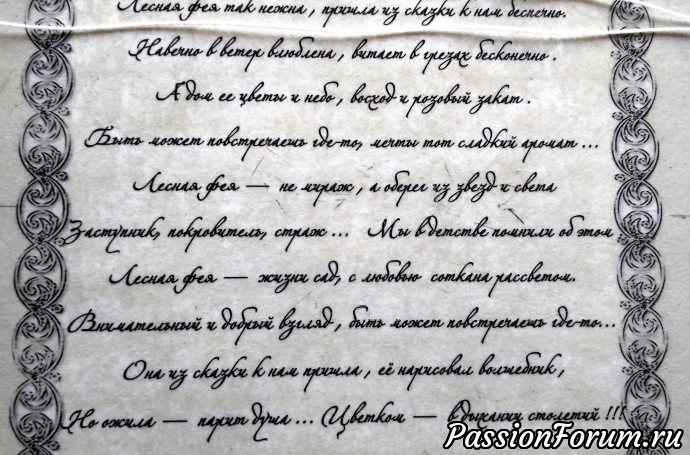 Лесная фея так нежна, пришла из сказки к нам беспечно.
Навечно в ветер влюблена, витает в грезах бесконечно.
А дом ее цветы и небо, восход и розовый закат.
Быть может повстречаешь где-то, мечты тот сладкий аромат...
Лесная фея — не мираж, а оберег из звезд и света
Заступник, покровитель, страж... Мы в детстве помнили об этом
Лесная фея — жизни сад, с любовью соткана рассветом.
Внимательный и добрый взгляд, быть может повстречаешь где-то...
Она из сказки к нам пришла, её нарисовал волшебник,
Но ожила — парит душа... Цветком — в дыхании столетий!!!
PassionForum.ru